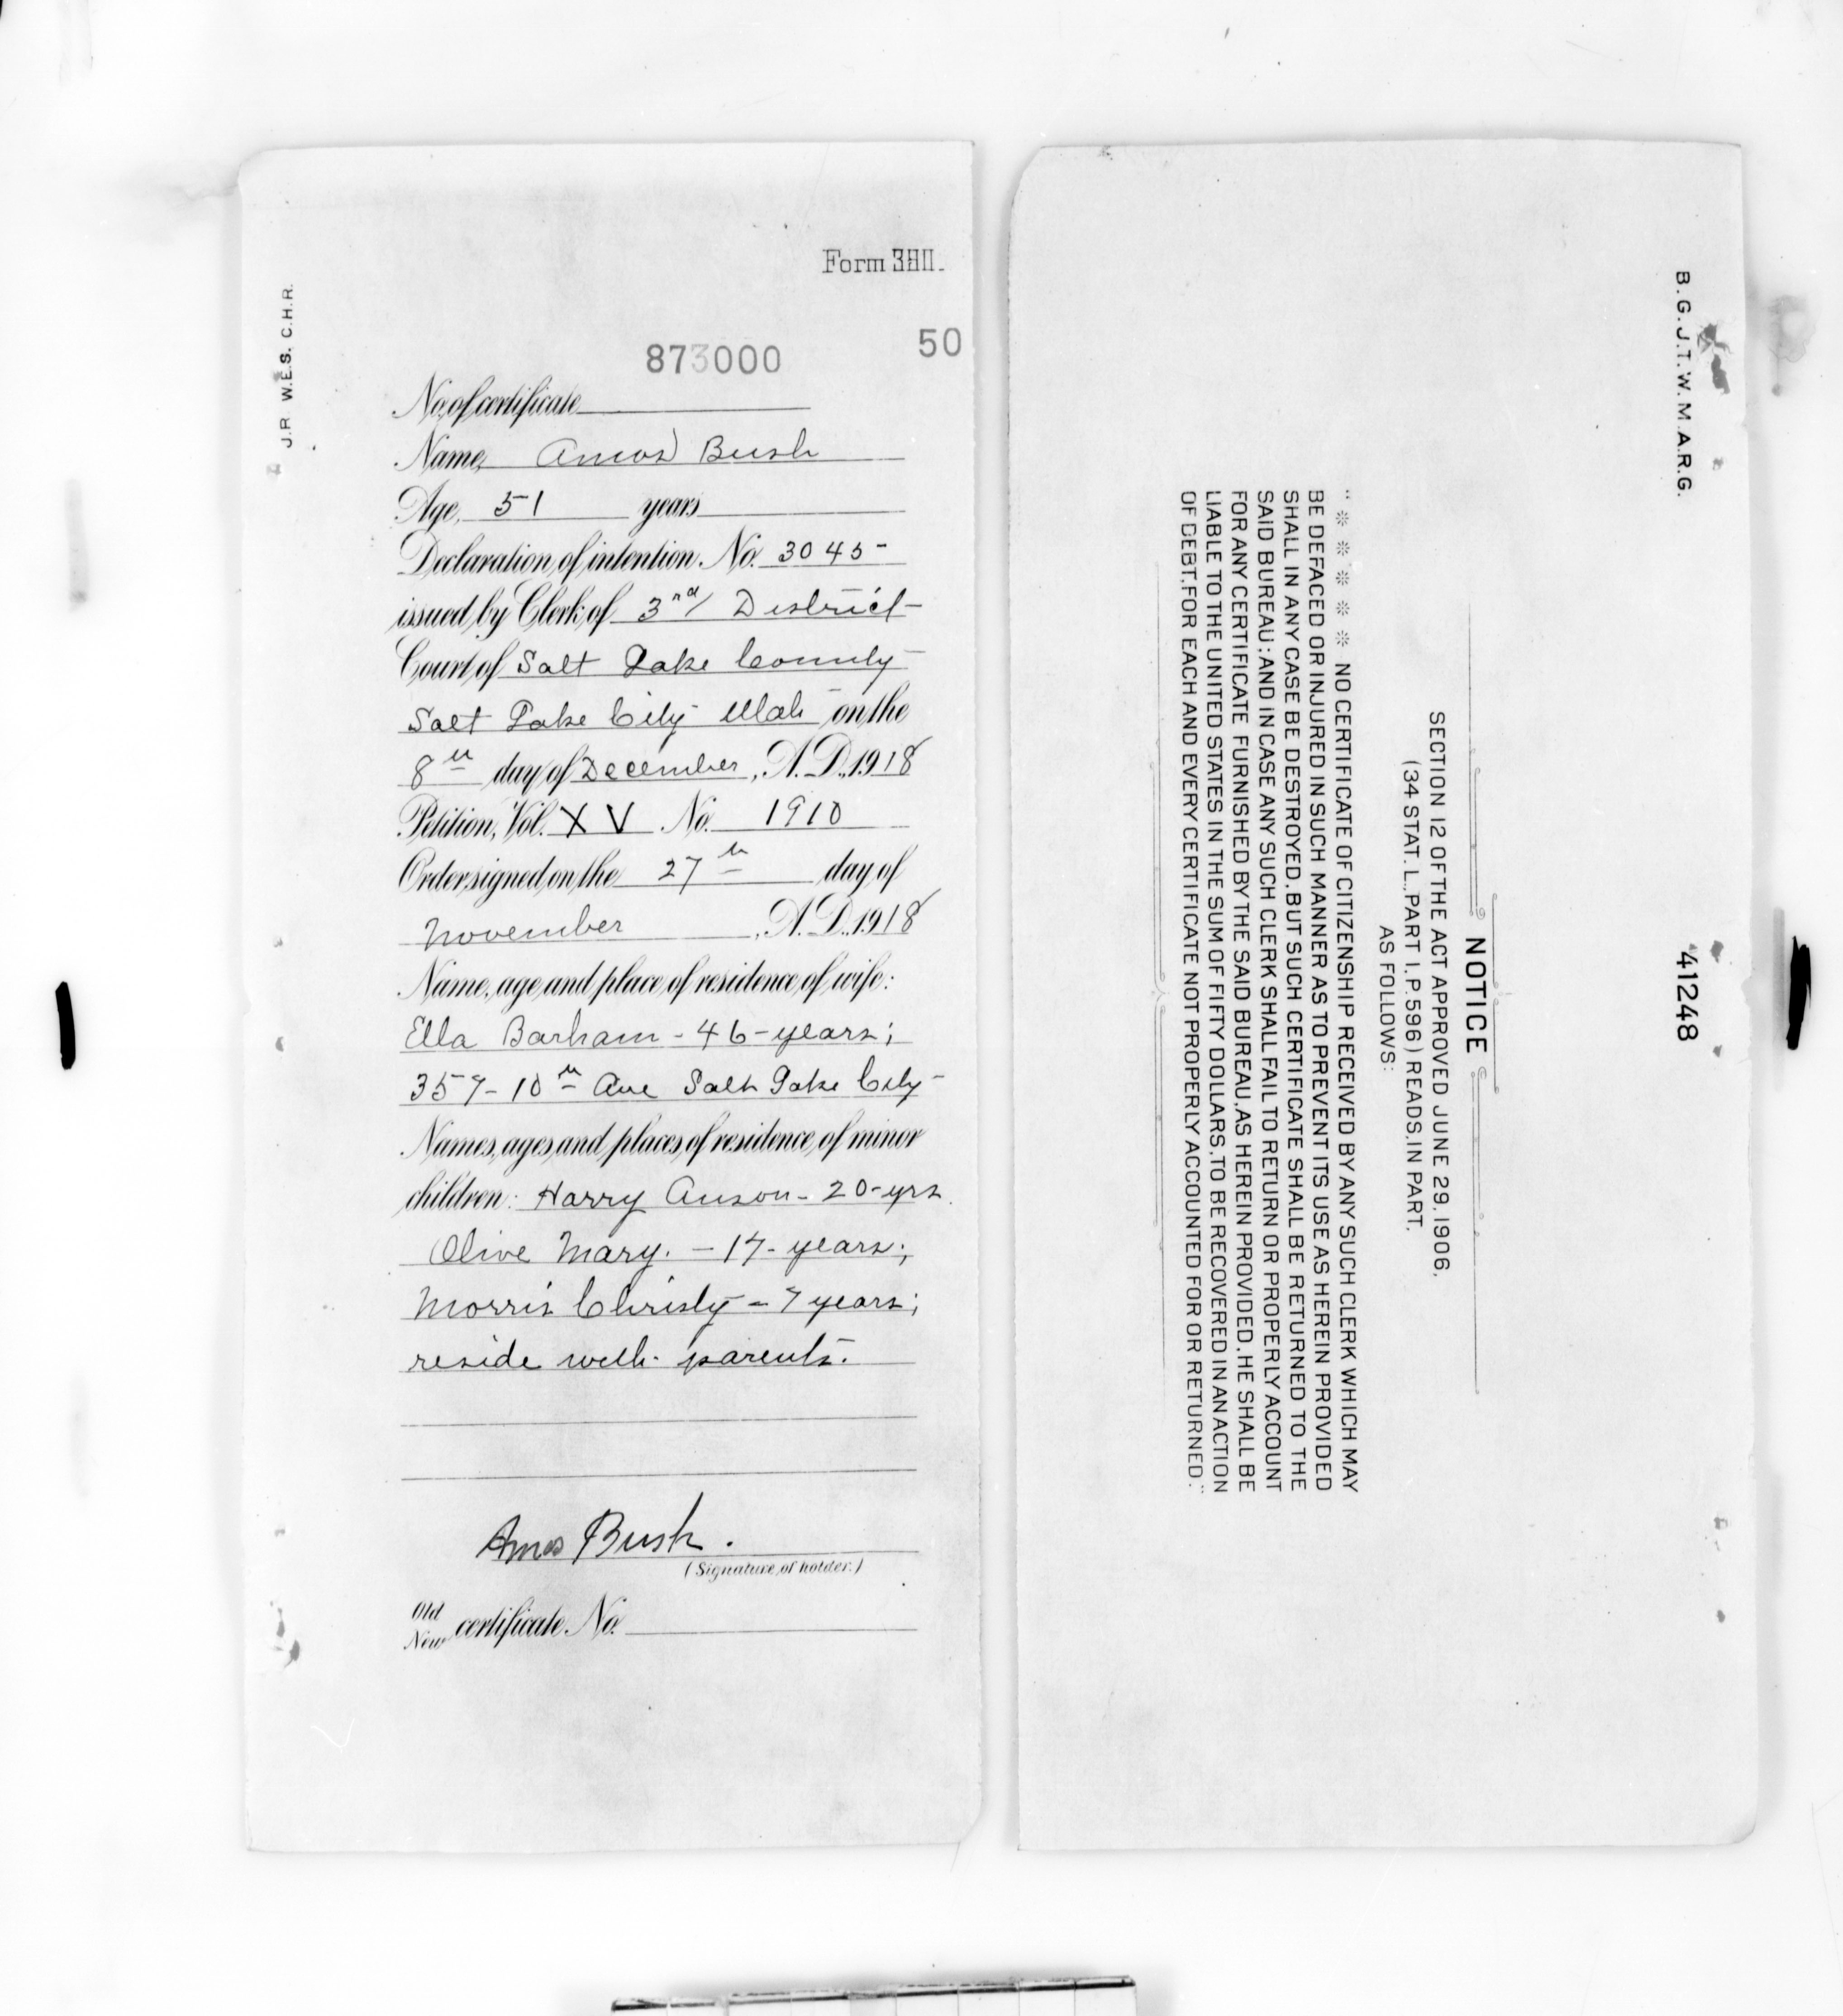 Form 380.
J.P. W.E.S. C.H.R.
873000
50
No. of certificate
Name, Amos Bush
Age, 51 years
Declaration of intention, No. 3045-
issued by Clerk of 3rd District
Court of Salt Lake County
Salt Lake City Utah on the
8th day of December, A.D. 1918
Petition, Vol. XV No. 1910
Order signed on the 27th day of
November, A.D. 1918
Name, age and place of residence of wife:
Ella Barham - 46 - years;
357 - 10th Ave Salt Lake City -
Names, ages and places of residence of minor
children: Harry Anson - 20 - yrs.
Olive Mary. - 17 - years;
Morris Christy - 7 years;
reside with parents.
Amos Bush.
(Signature of holder.)
Old
New certificate No.
B.G. J.T. W.M. A.R.G.
41248
NOTICE
SECTION 12 OF THE ACT APPROVED JUNE 29, 1906,
(34 STAT. L., PART I, P. 596) READS, IN PART,
AS FOLLOWS:
" * * * * * NO CERTIFICATE OF CITIZENSHIP RECEIVED BY ANY SUCH CLERK WHICH MAY
BE DEFACED OR INJURED IN SUCH MANNER AS TO PREVENT ITS USE AS HEREIN PROVIDED
SHALL IN ANY CASE BE DESTROYED, BUT SUCH CERTIFICATE SHALL BE RETURNED TO THE
SAID BUREAU; AND IN CASE ANY SUCH CLERK SHALL FAIL TO RETURN OR PROPERLY ACCOUNT
FOR ANY CERTIFICATE FURNISHED BY THE SAID BUREAU, AS HEREIN PROVIDED, HE SHALL BE
LIABLE TO THE UNITED STATES IN THE SUM OF FIFTY DOLLARS, TO BE RECOVERED IN AN ACTION
OF DEBT, FOR EACH AND EVERY CERTIFICATE NOT PROPERLY ACCOUNTED FOR OR RETURNED."